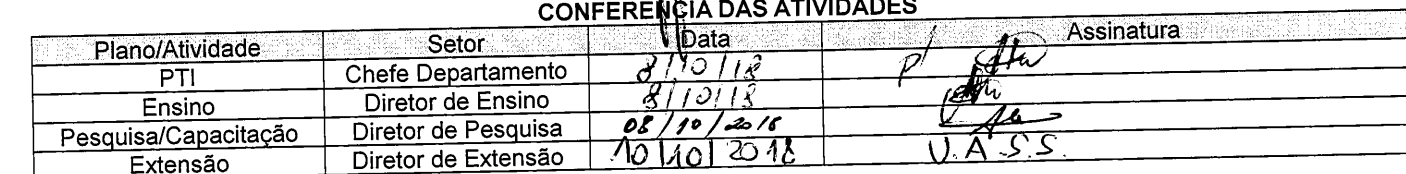 CONFERENCIA DAS ATIVIDADES
Plano/Atividade Setor Data Assinatura
PTI Chefe Departamento 8/10/18 p/
Ensino Diretor de Ensino 8/10/18
Pesquisa/Capacitação Diretor de Pesquisa 08/10/2018
Extensão Diretor de Extensão 10/10/2018 V.A.S.S.